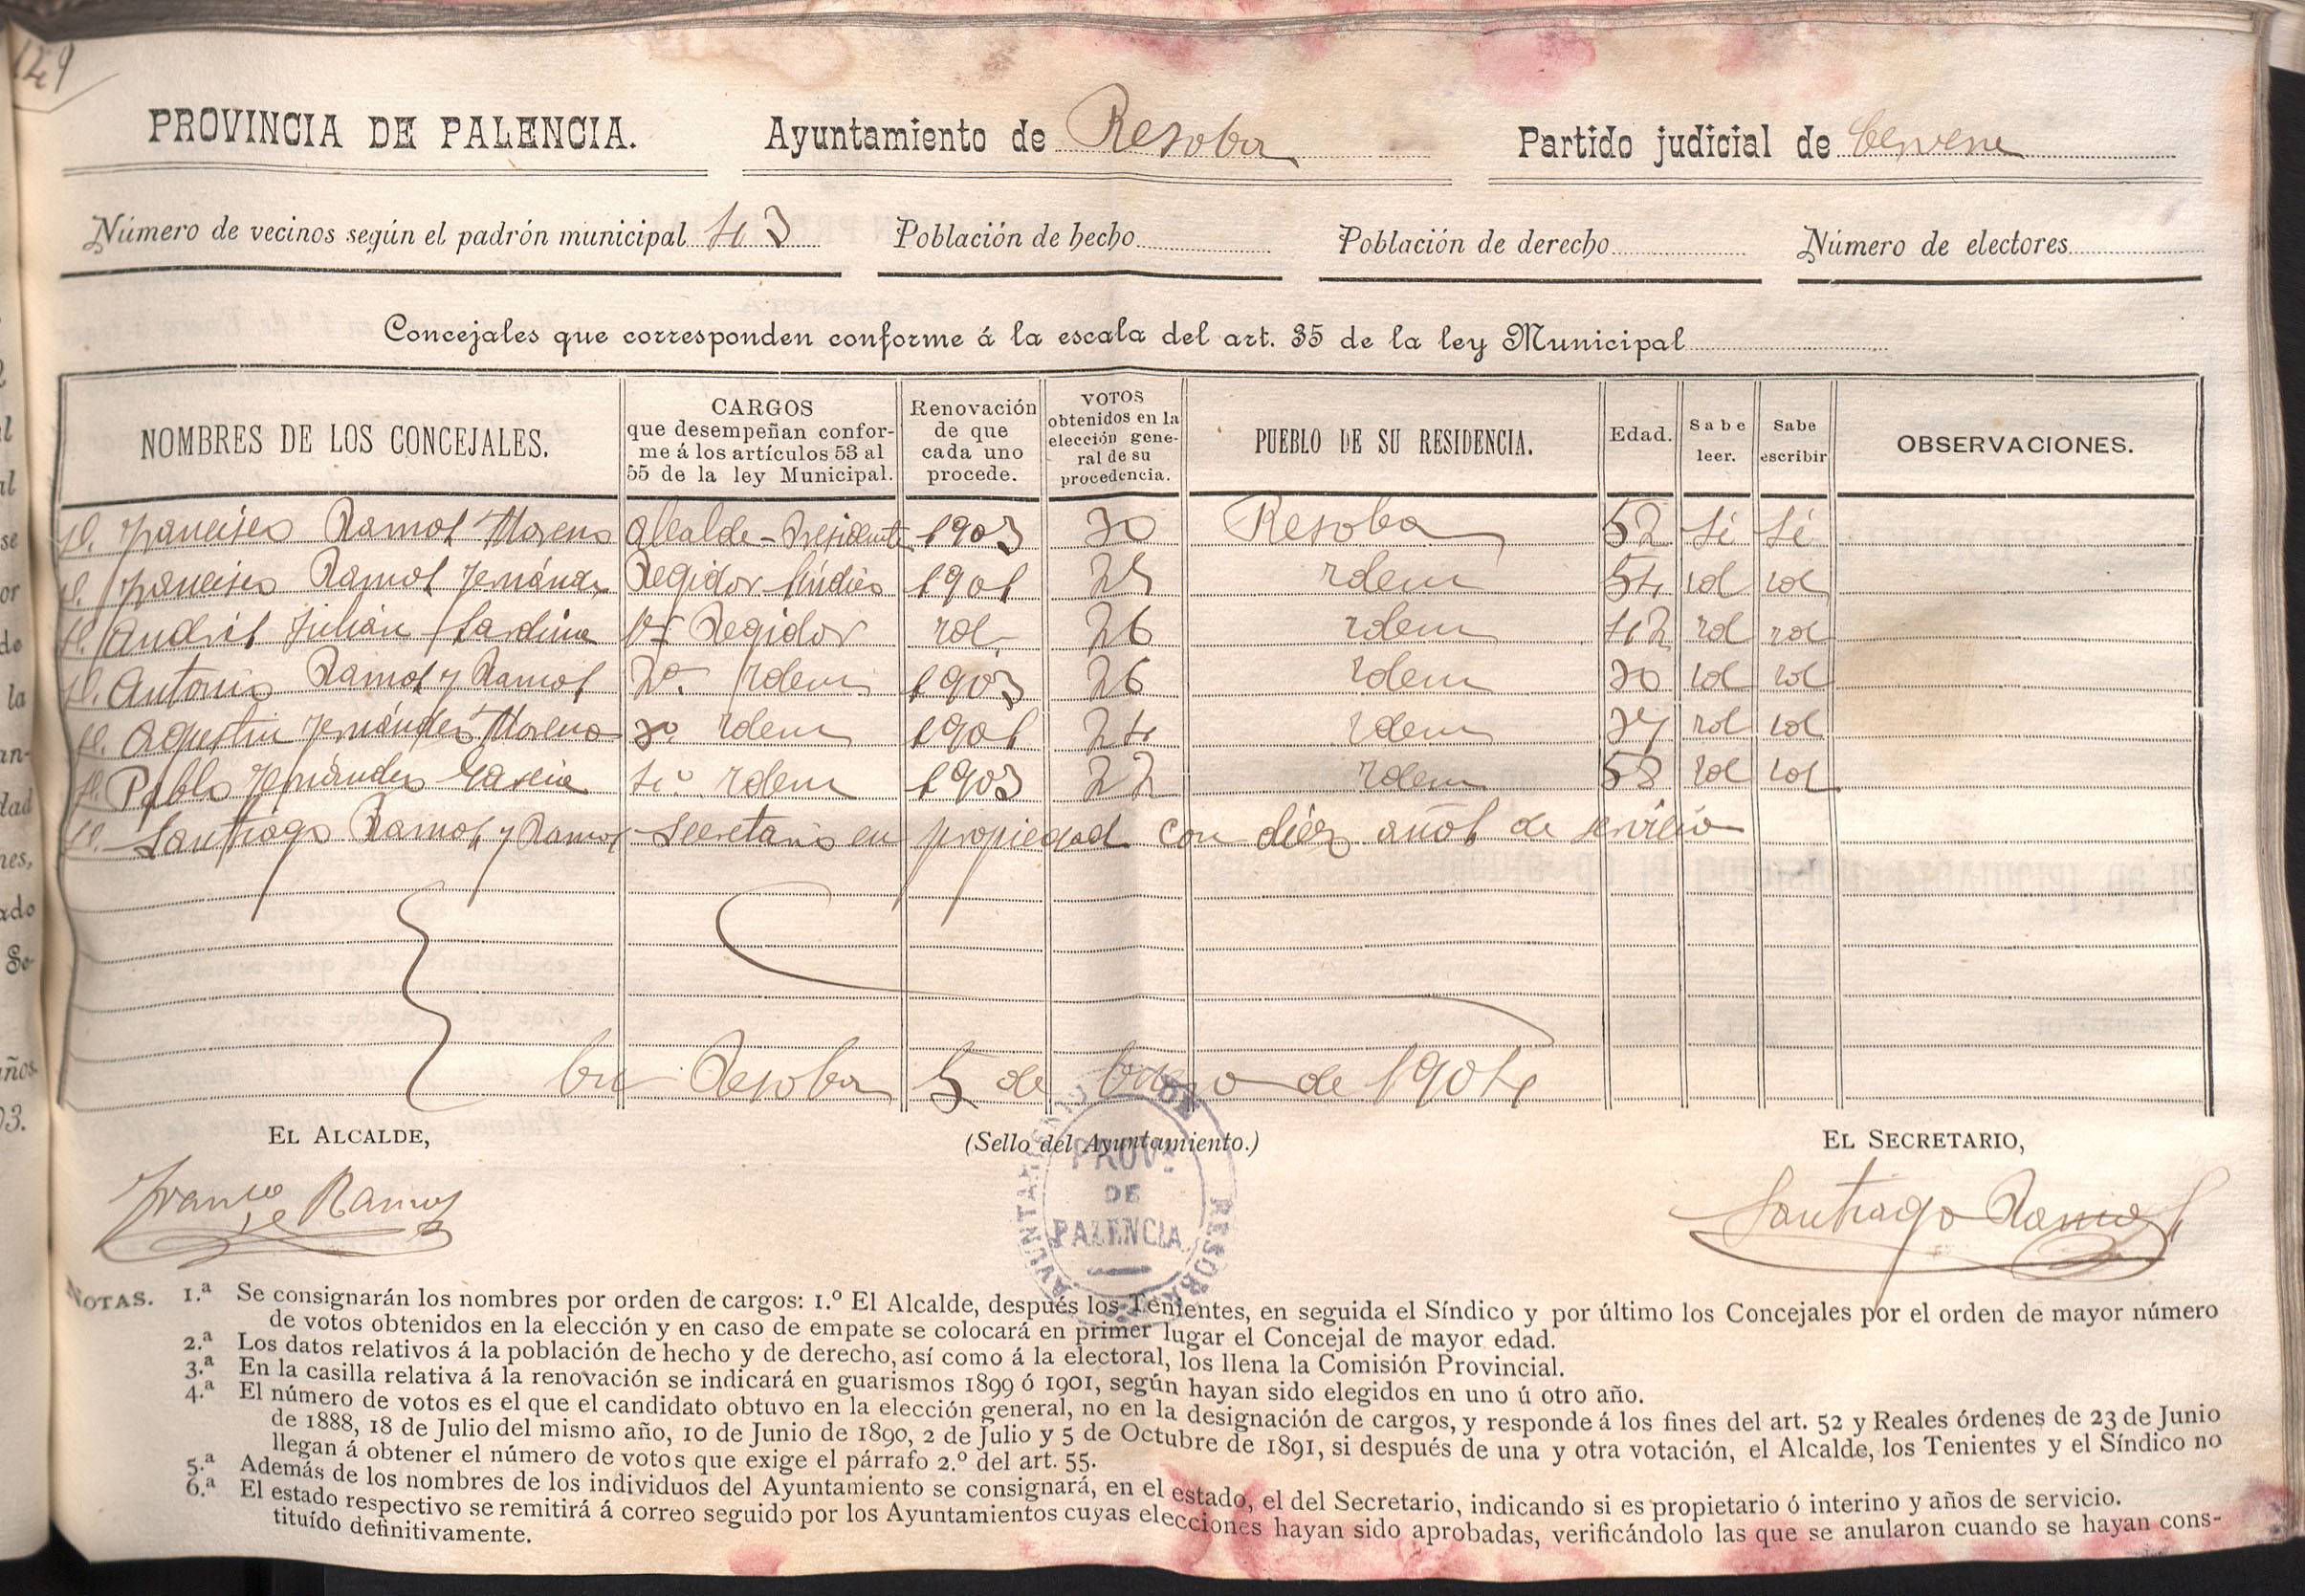 149
PROVINCIA DE PALENCIA. Ayuntamiento de Resoba Partido judicial de Cervera
Número de vecinos según el padrón municipal 43 Población de hecho Población de derecho Número de electores
Concejales que corresponden conforme á la escala del art. 35 de la ley Municipal
NOMBRES DE LOS CONCEJALES. CARGOS que desempeñan conforme á los artículos 53 al 55 de la ley Municipal. Renovación de que cada uno procede. VOTOS obtenidos en la elección general de su procedencia. PUEBLO DE SU RESIDENCIA. Edad. Sabe leer. Sabe escribir OBSERVACIONES.
D. Francisco Ramos Moreno Alcalde-Presidente 1903 30 Resoba 52 Si Si
D. Francisco Ramos Fernández Regidor Síndico 1901 25 Idem 54 id id
D. Andrés Julián Sardina 1º Regidor id. 26 Idem 42 id id
D. Antonio Ramos y Ramos 2º. Idem 1903 26 Idem 30 id id
D. Agustin Fernández Moreno 3º. Idem 1901 24 Idem 37 id id
D. Pablo Fernández García 4º. Idem 1903 22 Idem 53 id id
D. Santiago Ramos y Ramos Secretario en propiedad con diéz años de servicio
En Resoba 5 de Enero de 1904
EL ALCALDE, (Sello del Ayuntamiento.) EL SECRETARIO,
Franco Ramos Santiago Ramos
AYUNTAMIENTO DE RESOBA
PROVª
DE
PALENCIA
NOTAS. 1.ª Se consignarán los nombres por orden de cargos: 1.º El Alcalde, después los Tenientes, en seguida el Síndico y por último los Concejales por el orden de mayor número
de votos obtenidos en la elección y en caso de empate se colocará en primer lugar el Concejal de mayor edad.
2.ª Los datos relativos á la población de hecho y de derecho, así como á la electoral, los llena la Comisión Provincial.
3.ª En la casilla relativa á la renovación se indicará en guarismos 1899 ó 1901, según hayan sido elegidos en uno ú otro año.
4.ª El número de votos es el que el candidato obtuvo en la elección general, no en la designación de cargos, y responde á los fines del art. 52 y Reales órdenes de 23 de Junio
de 1888, 18 de Julio del mismo año, 10 de Junio de 1890, 2 de Julio y 5 de Octubre de 1891, si después de una y otra votación, el Alcalde, los Tenientes y el Síndico no
llegan á obtener el número de votos que exige el párrafo 2.º del art. 55.
5.ª Además de los nombres de los individuos del Ayuntamiento se consignará, en el estado, el del Secretario, indicando si es propietario ó interino y años de servicio.
6.ª El estado respectivo se remitirá á correo seguido por los Ayuntamientos cuyas elecciones hayan sido aprobadas, verificándolo las que se anularon cuando se hayan cons-
tituído definitivamente.